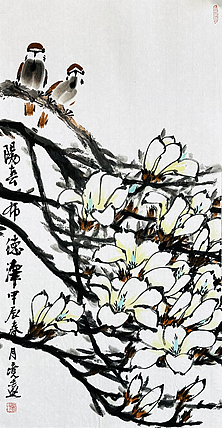 陽春布德澤
甲辰春月虎盦